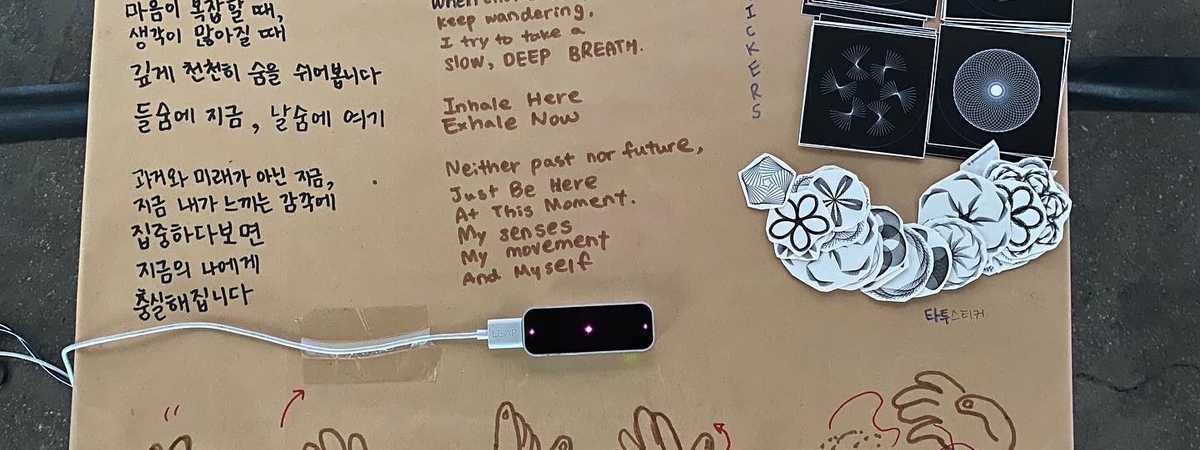 마음이 복잡할 때,
생각이 많아질 때
깊게 천천히 숨을 쉬어봅니다
들숨에 지금, 날숨에 여기
과거와 미래가 아닌 지금,
지금 내가 느끼는 감각에
집중하다보면
지금의 나에게
충실해집니다
keep wandering,
I try to take a
slow, DEEP BREATH.
Inhale Here
Exhale Now
Neither past nor future,
Just Be Here
At This Moment.
My senses
My movement
And Myself
ICKERS
타투스티커
LEAP